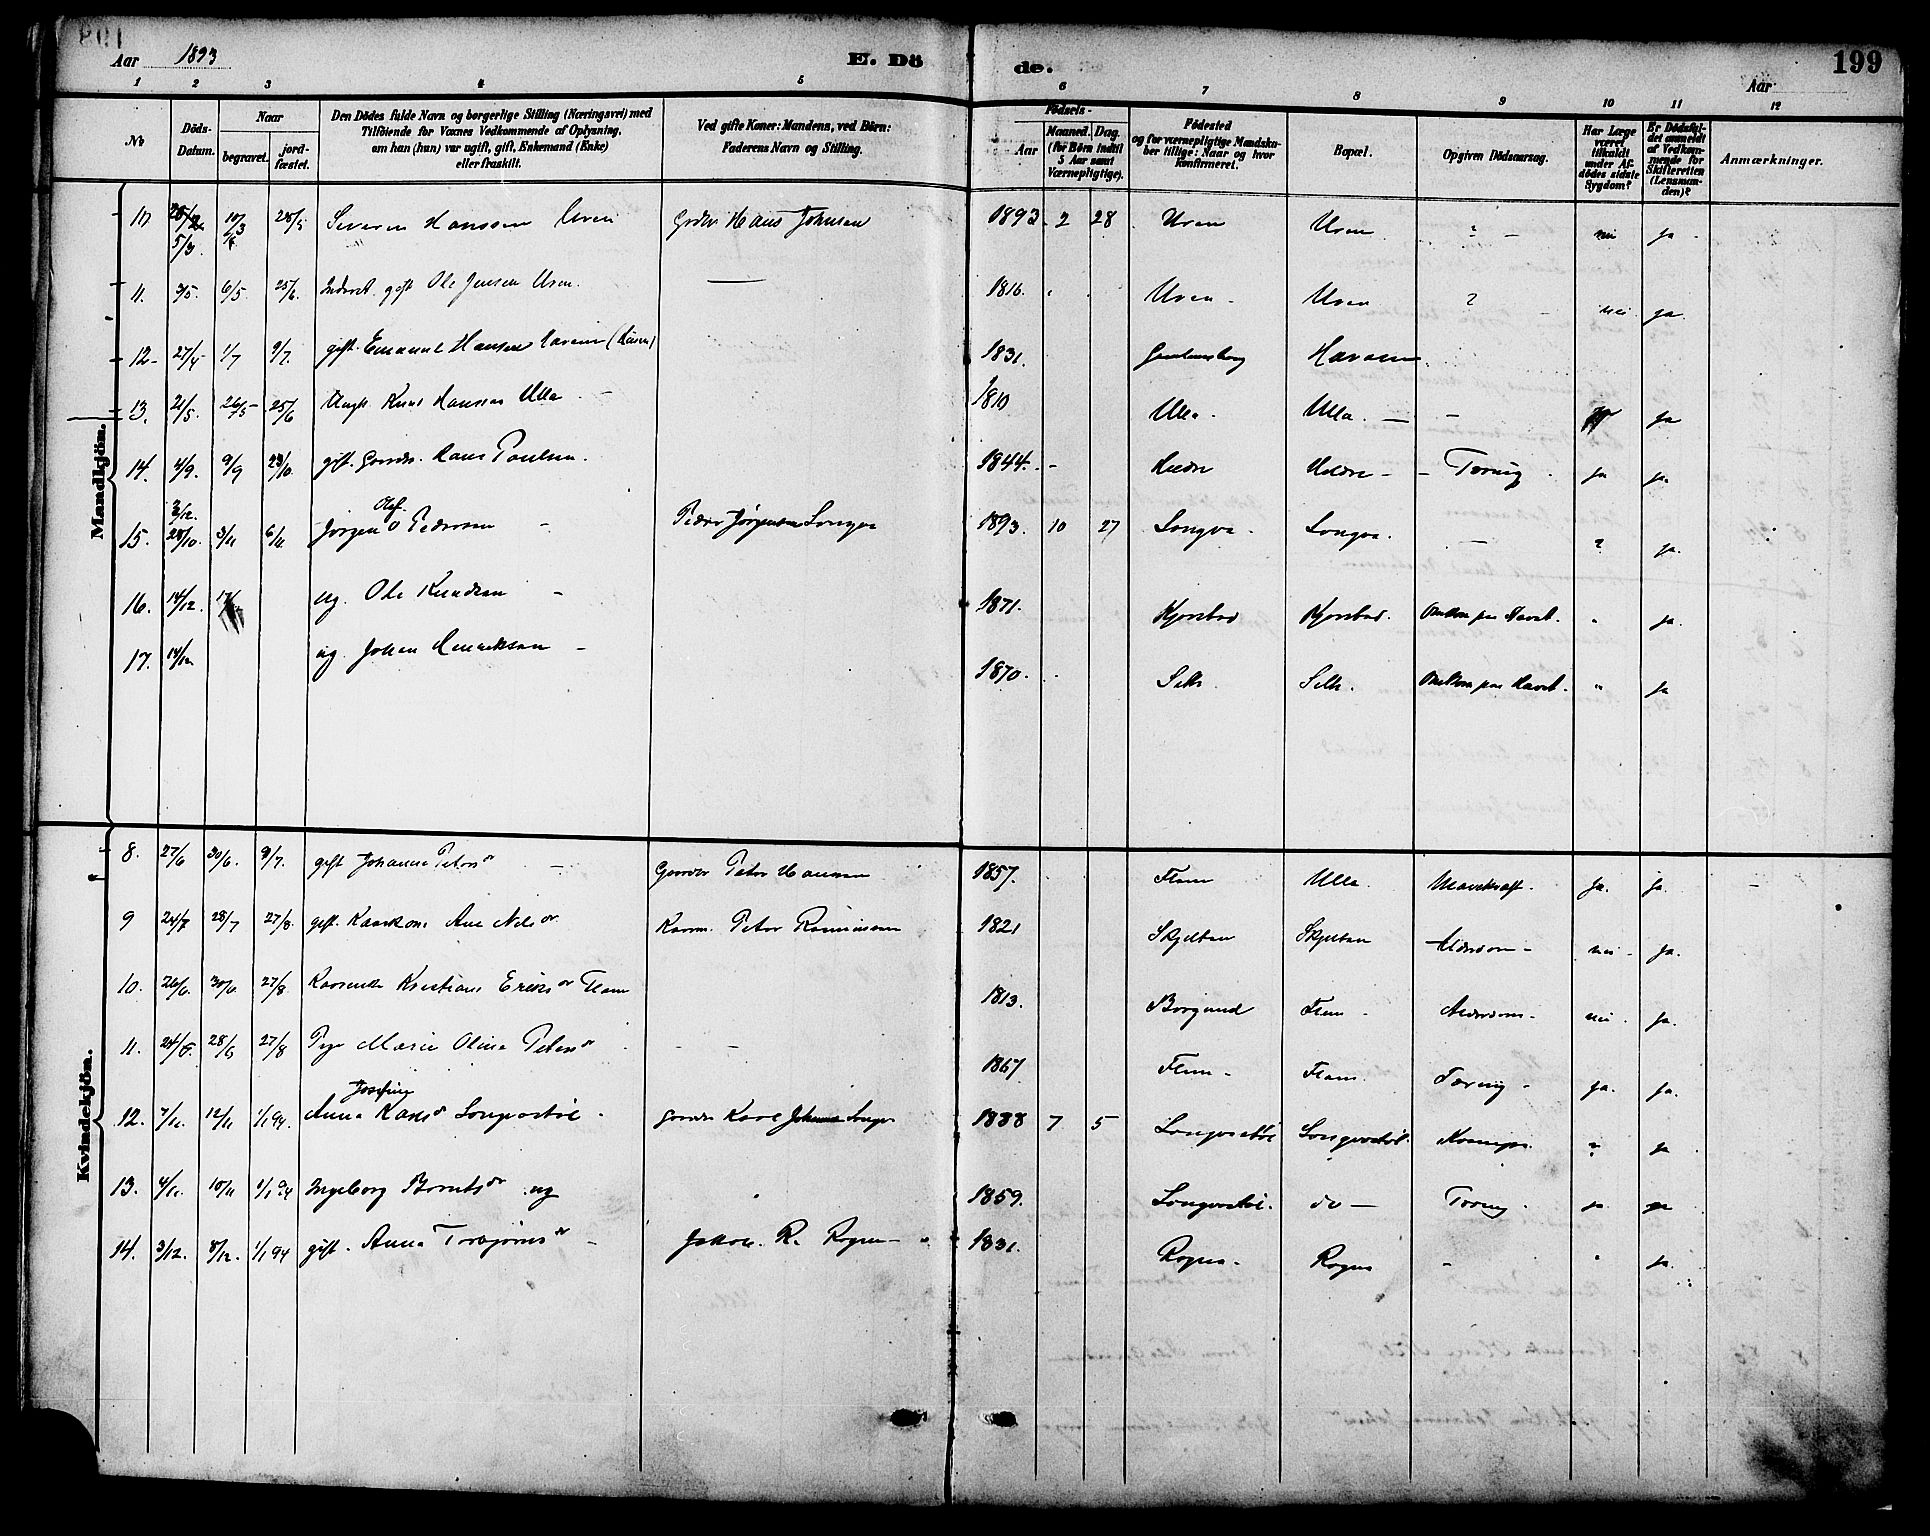 Aar 1893
E. Döde.
Aar
199
1 2 3 4 5 6 7 8 9 10 11 12
No
Döds-Datum.
Naar
begravet.
jord-fæstet.
Den Dödes fulde Navn og borgerlige Stilling (Næringsvei) med
Tilföiende for Voxnes Vedkommende af Oplysning,
om han (hun) var ugift, gift, Enkemand (Enke)
eller fraskilt.
Ved gifte Koner: Mandens, ved Börn:
Faderens Navn og Stilling.
Födsels-
Aar
Maaned. Dag.
(for Börn indtil
5 Aar samt
Værnepligtige).
Födested
og for værnepligtige Mandska-
ber tillige: Naar og hvor
konfirmeret.
Bopæl.
Opgiven Dödsaarsag.
Har Læge
været
tilkaldt
under Af-
dödes sidste
Sygdom?
Er Dödsfal-
det anmeldt
af Vedkom-
mende for
Skifteretten
(Lensman-
den)?
Anmærkninger.
Mandkjön.
10 5/3. 10/3 Severin Hanssen Uren Hans Johnsen 1893 2 28 Uren Uren ? nei ja
11. 3/5. 6/5 25/6 Inderst gift Ole Jensen Uren 1816. Uren Uren ? nei ja
12 27/4 1/7 9/7 gift. Emanuel Hansen 1831. Haram
13. 21/5. 26/5 25/6 Knut Hansen Ulla 1810 Ulla. Ulla ja
14. 4/9. 9/9 29/10 gift. Gaardbr. Hans Paulsen. 1844. Hildre Hildre Tæring ja ja.
15. 2/12. 28/10. 3/11 6/11 Jørgen Olaf Pedersen Peder Jørgensen Longva 1893. 10 27 Longva. Longva. ? ja.
16. 14/12. ug. Ole Knudsen 1871. Kjerstad Kjerstad. Omkom paa Havet. " ja.
17. 14/12 ug. Johan Henriksen 1870. Selte. Selte. Omkom paa Havet. " ja
Kvindekjön.
8. 27/6 30/6. 9/7. gift Johanne Peters dr Gaardbr Peter Hansen 1857. Flem Ulla. Mavekræft. ja. ja.
9 24/7 28/7 27/8. gift. Kaarkone Ane Nils dr Kaarm. Peter Rasmussen 1821 Skjelten Skjelten Alderdom nei ja.
10. 26/6. 30/6 27/8. Kaarenke Kristiane Eriks dr Flem 1813. Borgund Flem Alderdom nei ja.
11. 24/5. 28/5 27/8 Pige Marie Oline Peters dr 1867 Flem Flem. Tæring ja. ja.
12. 7/11. 12/11 1/1 94. Anna Josefine Karls dr Longvastøl Gaardbr Karl Johnsen Longva 1888 7 5 Longvastøl Longvastøl. Krampe. ? ja
13. 4/11. 10/11 1/1 94 Ingeborg Bernts dr ug 1859. Longvastøl. do Tæring ja. ja
14. 3/12. 8/12. 1/1 94 gift. Anna Torbjørns dr Jakob R. Rogne 1831. Rogne. Rogne ja.